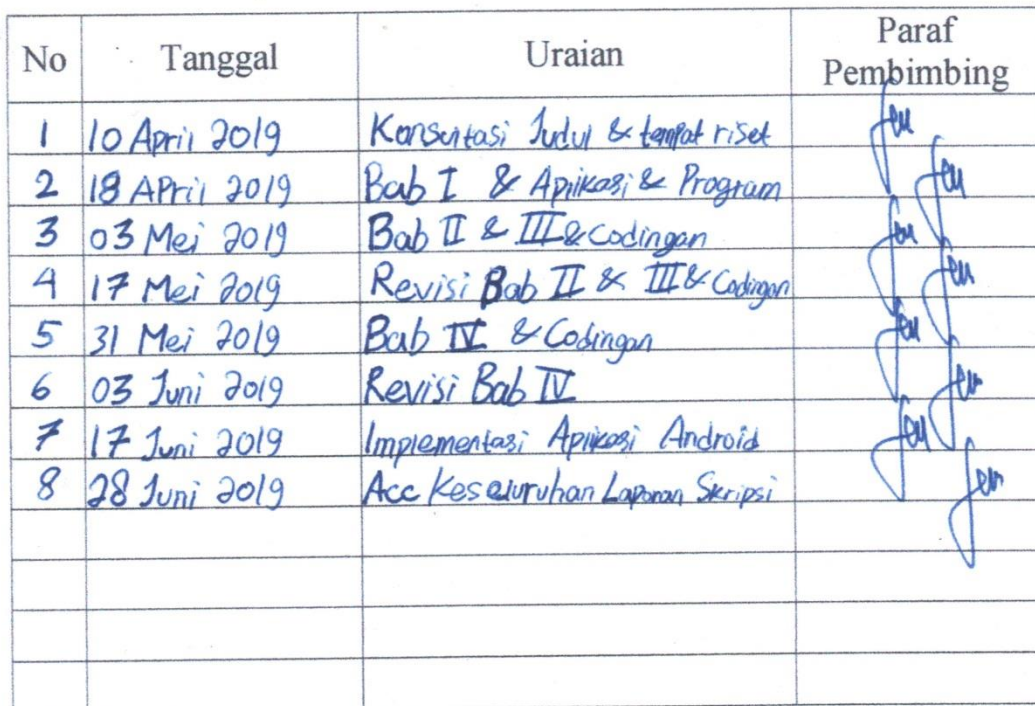 No Tanggal Uraian Paraf Pembimbing
1 10 April 2019 Konsultasi Judul & tempat riset
2 18 April 2019 Bab I & Aplikasi & Program
3 03 Mei 2019 Bab II & III & Codingan
4 17 Mei 2019 Revisi Bab II & III & Codingan
5 31 Mei 2019 Bab IV & Codingan
6 03 Juni 2019 Revisi Bab IV
7 17 Juni 2019 Implementasi Aplikasi Android
8 28 Juni 2019 Acc Keseluruhan Laporan Skripsi